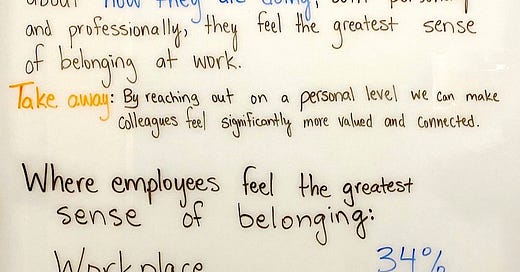 about how they are doing, both personally
and professionally, they feel the greatest sense
of belonging at work.
Take away: By reaching out on a personal level we can make
colleagues feel significantly more valued and connected.
Where employees feel the greatest
sense of belonging:
Workplace 34%